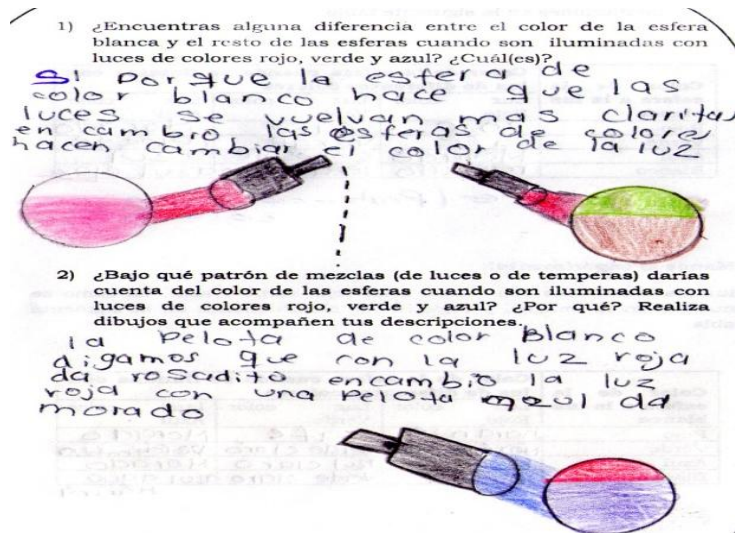 1) ¿Encuentras alguna diferencia entre el color de la esfera
blanca y el resto de las esferas cuando son iluminadas con
luces de colores rojo, verde y azul? ¿Cuál(es)?
SI Por que la esfera de
color blanco hace que las
luces se vuelvan mas claritas
en cambio las esferas de colores
hacen cambiar el color de la luz
2) ¿Bajo qué patrón de mezclas (de luces o de temperas) darías
cuenta del color de las esferas cuando son iluminadas con
luces de colores rojo, verde y azul? ¿Por qué? Realiza
dibujos que acompañen tus descripciones.
la Pelota de color Blanco
digamos que con la luz roja
da rosadito encambio la luz
roja con una Pelota azul da
morado